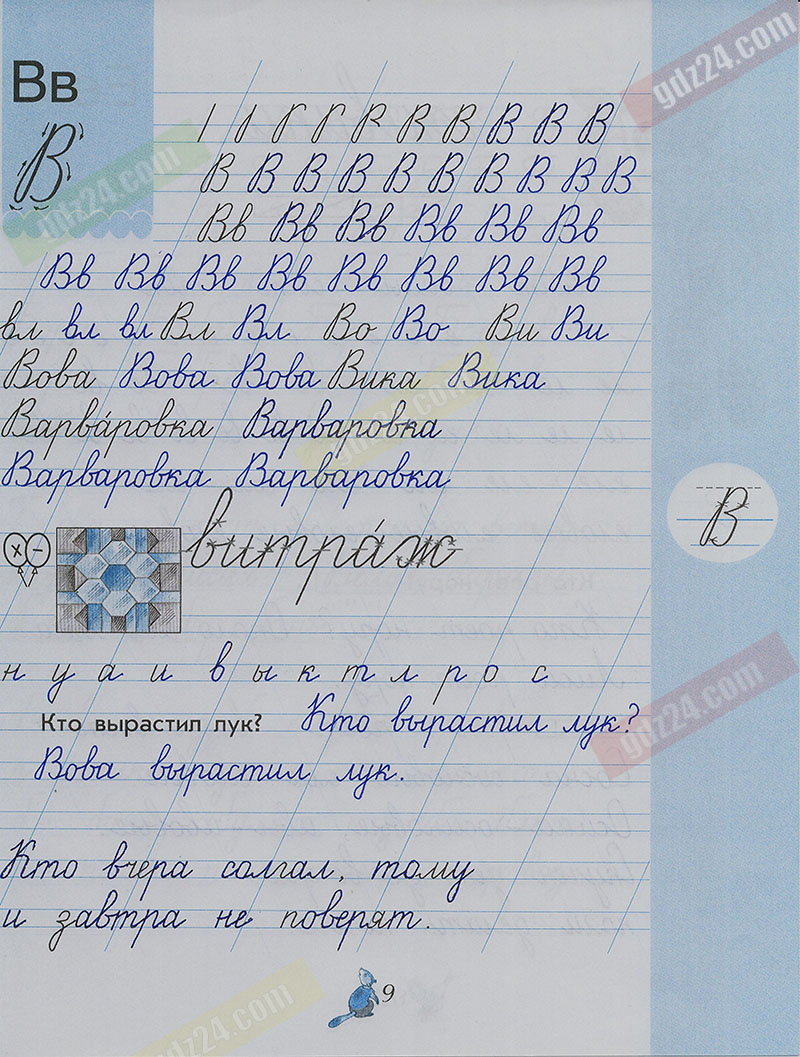 Вв
В
В В В В В
В В В В В В В В В В
Вв Вв Вв Вв Вв Вв
Вв Вв Вв Вв Вв Вв Вв Вв
вл вл вл Вл Вл Во Во Ви Ви
Вова Вова Вова Вика Вика
Варва́ровка Варваровка
Варваровка Варваровка
В
× −
витра́ж
н у а и в ы к т л р о с
Кто вырастил лук? Кто вырастил лук?
Вова вырастил лук.
Кто вчера солгал, тому
и завтра не поверят.
9
gdz24.com
gdz24.com
gdz24.com
gdz24.com
gdz24.com